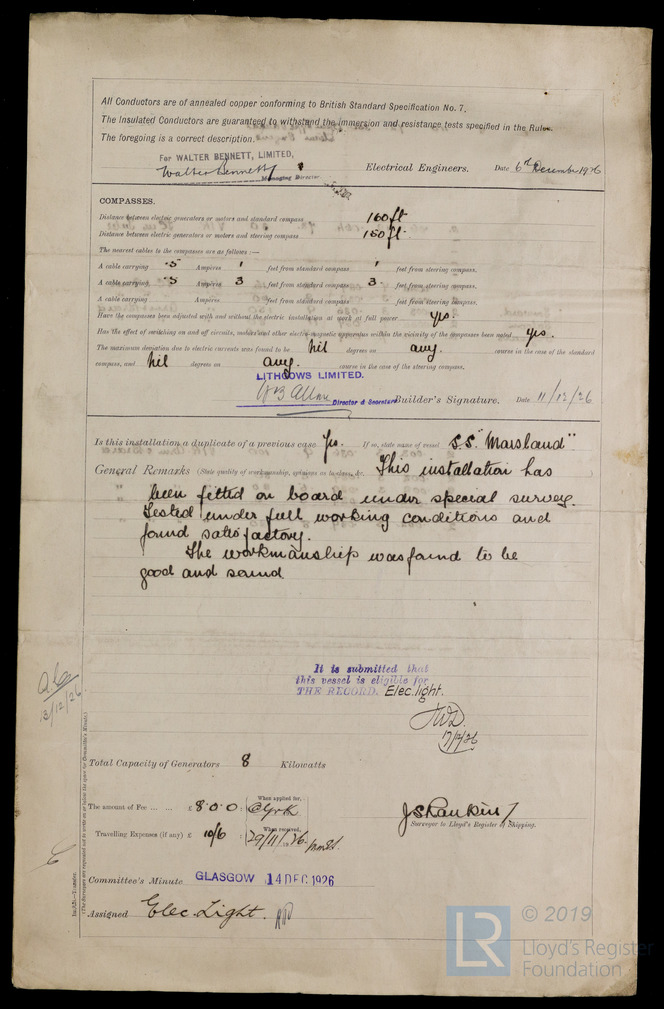 All Conductors are of annealed copper conforming to British Standard Specification No. 7.
The Insulated Conductors are guaranteed to withstand the immersion and resistance tests specified in the Rules.
The foregoing is a correct description.
For WALTER BENNETT, LIMITED,
Walter Bennett Managing Director. Electrical Engineers. Date 6th December 1926
COMPASSES.
Distance between electric generators or motors and standard compass 160 ft
Distance between electric generators or motors and steering compass 150 ft.
The nearest cables to the compasses are as follows :—
A cable carrying .5 Amperes 1 feet from standard compass 1 feet from steering compass.
A cable carrying .5 Amperes 3 feet from standard compass 3 feet from steering compass.
A cable carrying Amperes feet from standard compass feet from steering compass.
Have the compasses been adjusted with and without the electric installation at work at full power yes.
Has the effect of switching on and off circuits, motors and other electro-magnetic apparatus within the vicinity of the compasses been noted yes.
The maximum deviation due to electric currents was found to be Nil degrees on any. course in the case of the standard
compass, and Nil degrees on any. course in the case of the steering compass.
LITHGOWS LIMITED.
Director & Secretary Builder's Signature. Date 11/12/26
Is this installation a duplicate of a previous case Yes. If so, state name of vessel S.S. "Marsland"
General Remarks (State quality of workmanship, opinions on tests, &c. This installation has
been fitted on board under special survey.
Tested under full working conditions and
found satisfactory.
The workmanship was found to be
good and sound
It is submitted that
this vessel is eligible for
THE RECORD. Elec. light.
17/12/26
13/12/26
Total Capacity of Generators 8 Kilowatts
The amount of Fee ... ... £ 8.0.0 : When applied for,
J S Rankin
Surveyor to Lloyd's Register of Shipping.
Travelling Expenses (if any) £ 10/6 : When received,
29/11/26
Committee's Minute GLASGOW 14 DEC 1926
Assigned Elec. Light.
© 2019
LR
Lloyd's Register
Foundation